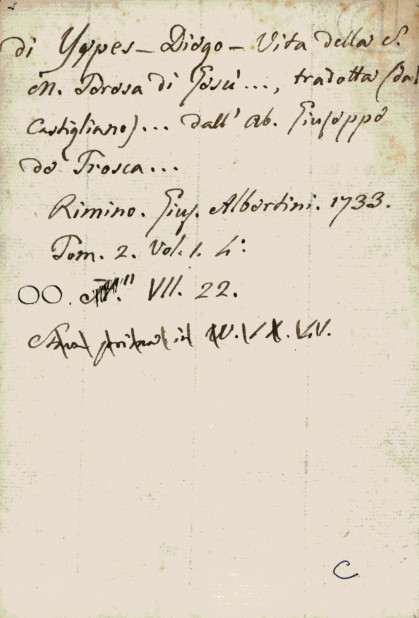 di Yepes - Diego - Vita della S.
M. Teresa di Gesù..., tradotta (dal
Castigliano)... dall' Ab. Giuseppe
de Frosca...
Rimino. Gius. Albertini. 1733.
Tom. 2. Vol. 1. 4°:
OO. VII. 22.
prima in
C